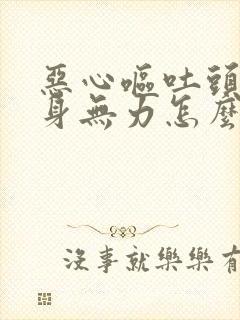 惡心嘔吐頭
身無力怎麼
沒事就樂樂有